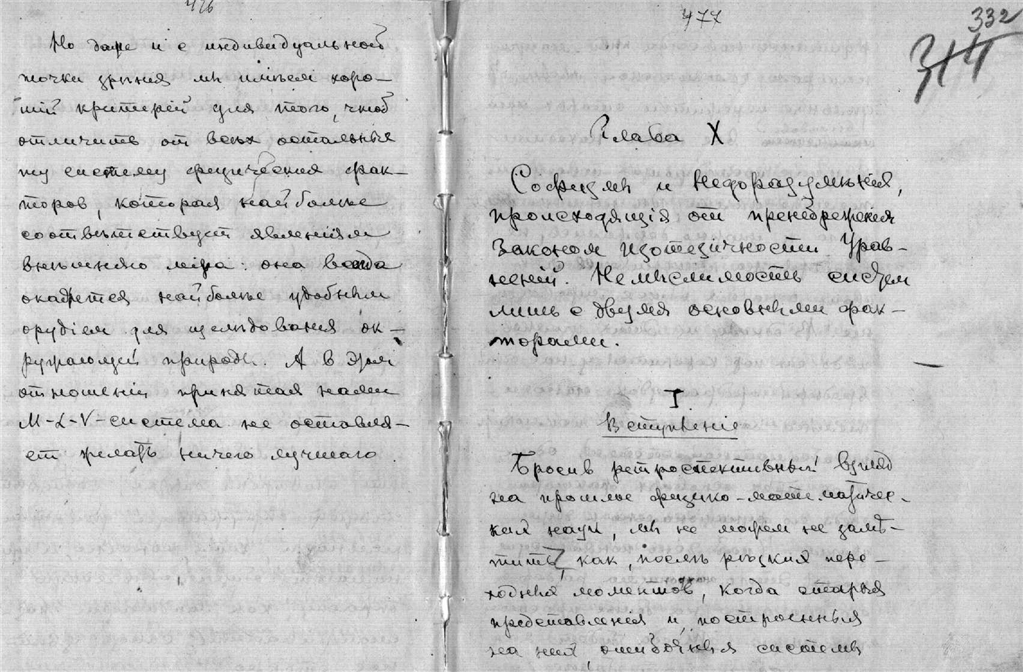 476
Но даже и с индивидуальной
точки зрѣния мы имѣем хоро-
ший критерей для того, чтоб
отличить от всѣх остальных
ту систему физических фак-
торов, которая наиболѣе
соотвѣтствует явлениям
внѣшняго мира: она всегда
окажется наиболѣе удобным
орудием для изслѣдования ок-
ружающей природы. А в этом
отношении принятая нами
M-L-V-система не оставля-
ет желать ничего лучшаго.
477
332
314
Глава X
Софизмы и недоразумѣния,
происходящия от пренебрежения
законом изотезичности урав-
нений. Немыслимость систем
лишь с двумя основными фак-
торами.
I
Вступление
Бросив ретроспективный взгляд
на прошлое физико-математичес-
ких наук, мы не можем не замѣ-
тить, как, послѣ рѣзких пере-
ходных моментов, когда старыя
представления и построенныя
на них ошибочныя системы